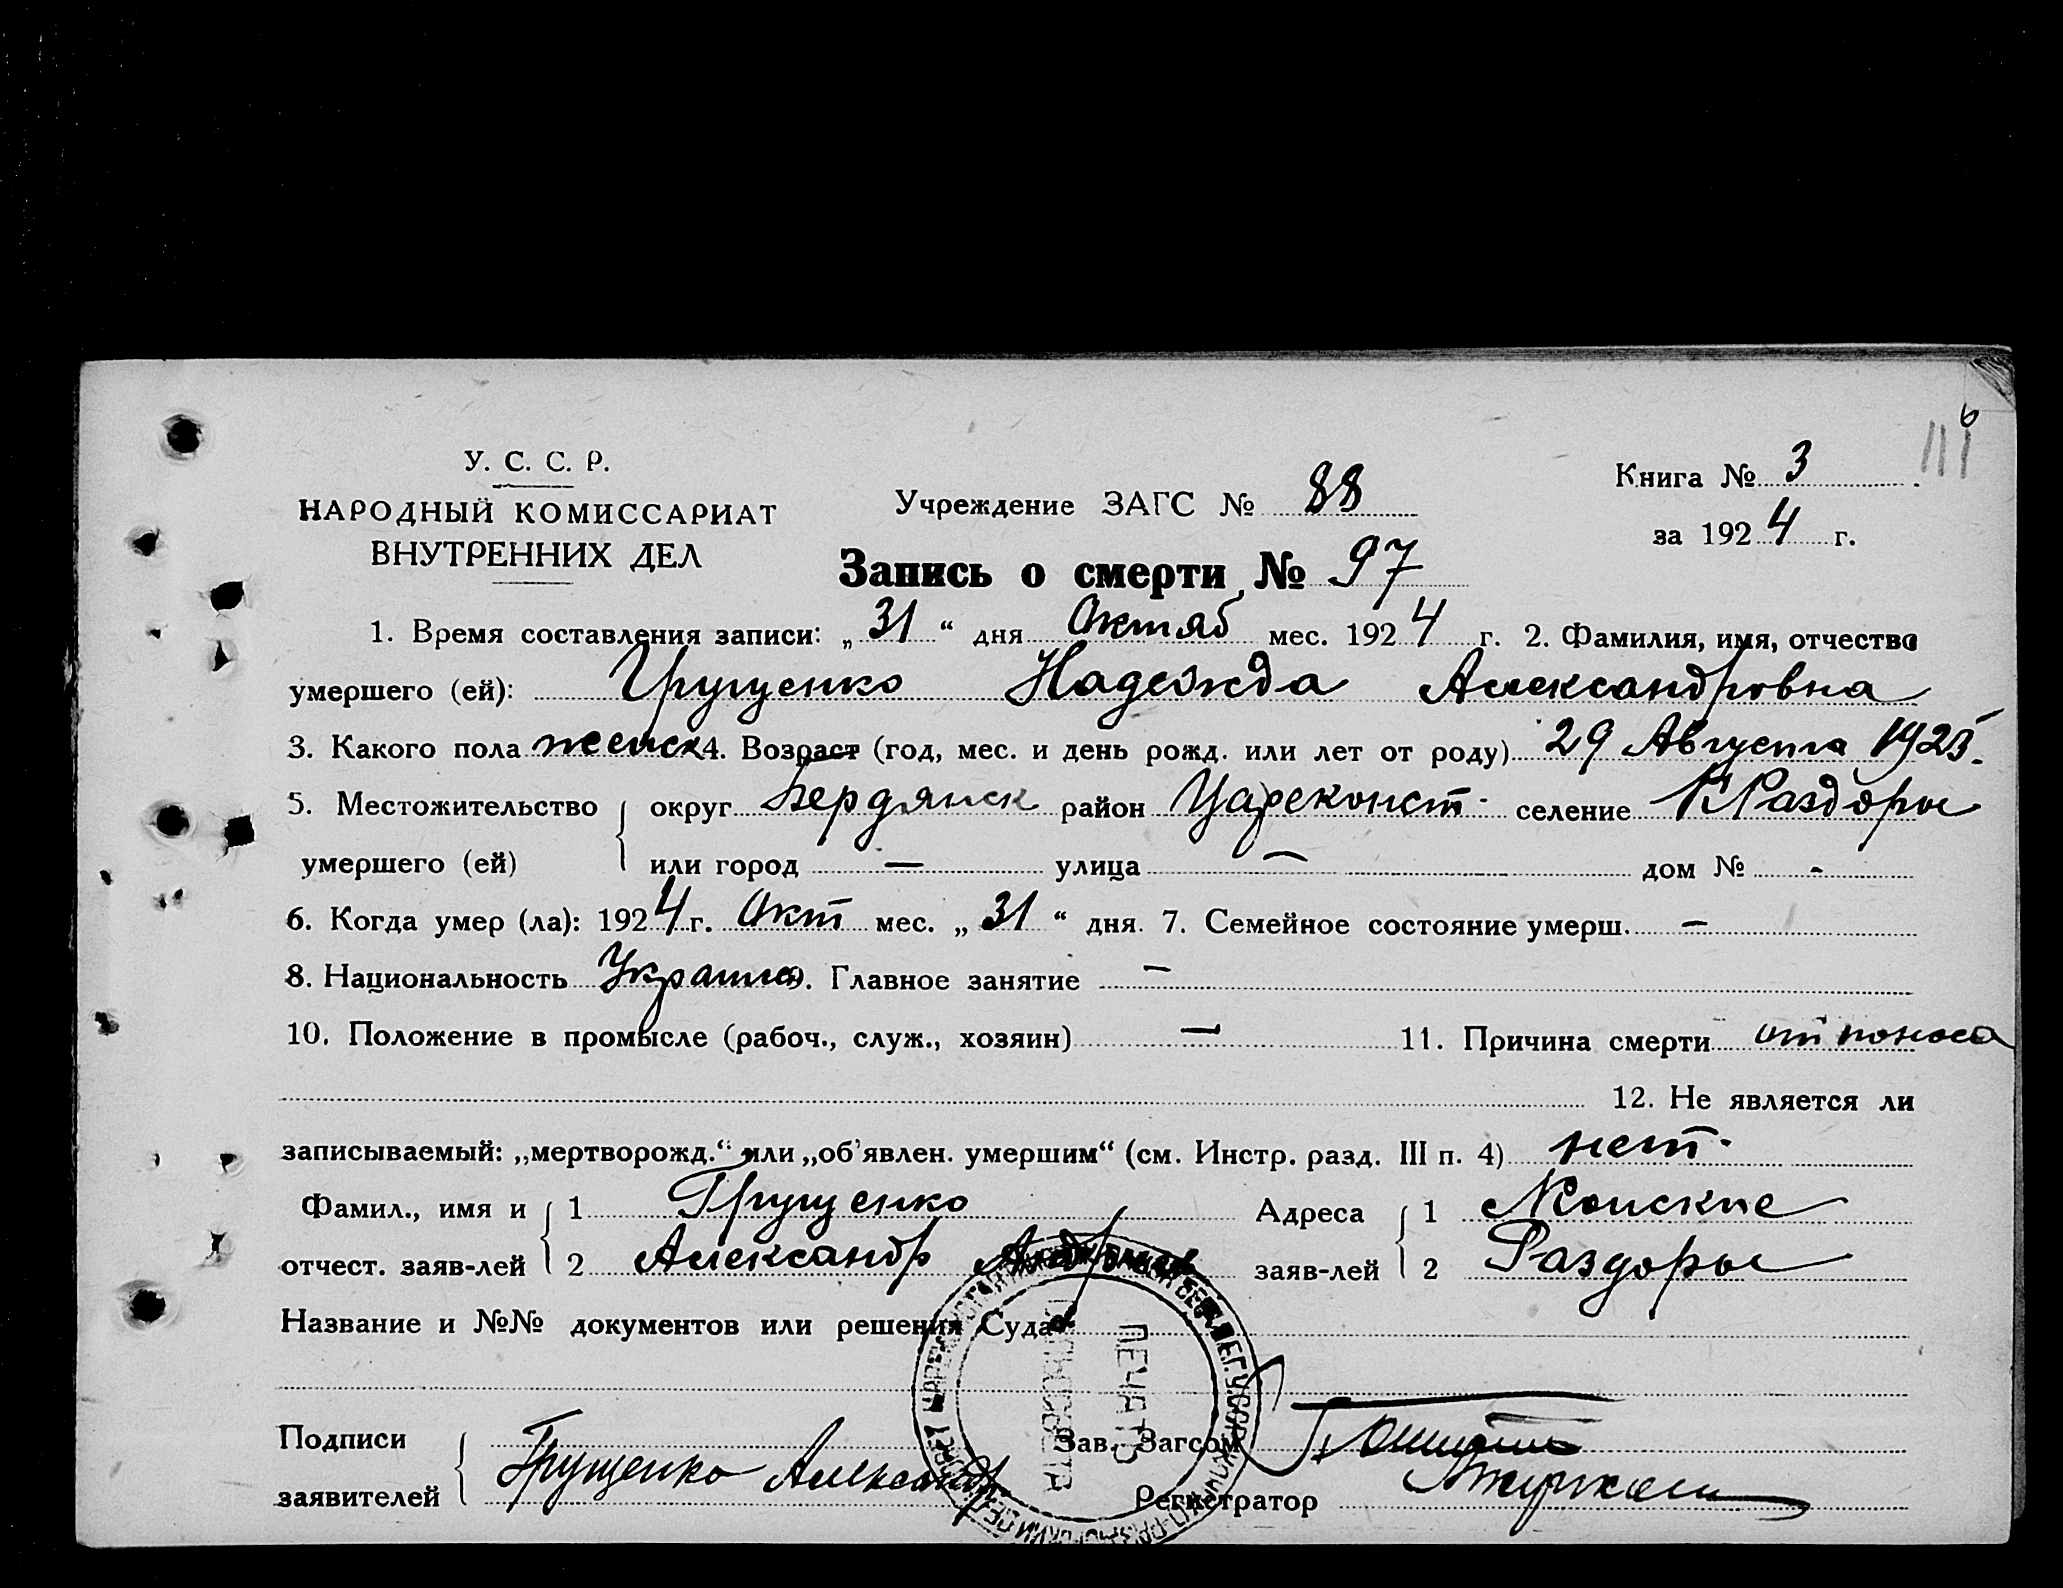 6
111
У. С. С. Р.
НАРОДНЫЙ КОМИССАРИАТ
ВНУТРЕННИХ ДЕЛ
Учреждение ЗАГС № 88
Книга № 3
за 1924 г.
Запись о смерти № 97
1. Время составления записи: „31“ дня Октяб мес. 1924 г. 2. Фамилия, имя, отчество
умершего (ей): Грущенко Надежда Александровна
3. Какого пола женск 4. Возраст (год, мес. и день рожд. или лет от роду) 29 Августа 1923.
5. Местожительство округ Бердянск район Цареконст. селение К Раздоры
умершего (ей) или город — улица — дом № -
6. Когда умер (ла): 1924 г. Окт мес. „31“ дня. 7. Семейное состояние умерш. —
8. Национальность 9. Главное занятие —
10. Положение в промысле (рабоч., служ., хозяин) — 11. Причина смерти от поноса
12. Не является ли
записываемый: „мертворожд.“ или „об'явлен. умершим“ (см. Инстр. разд. III п. 4) нет.
Фамил., имя и 1 Грущенко Адреса 1 Конские
отчест. заяв-лей 2 Александр заяв-лей 2 Раздоры
Название и №№ документов или решения Суда
ПЕЧАТЬ
Подписи Зав. Загсом
заявителей Грущенко Александр Регистратор